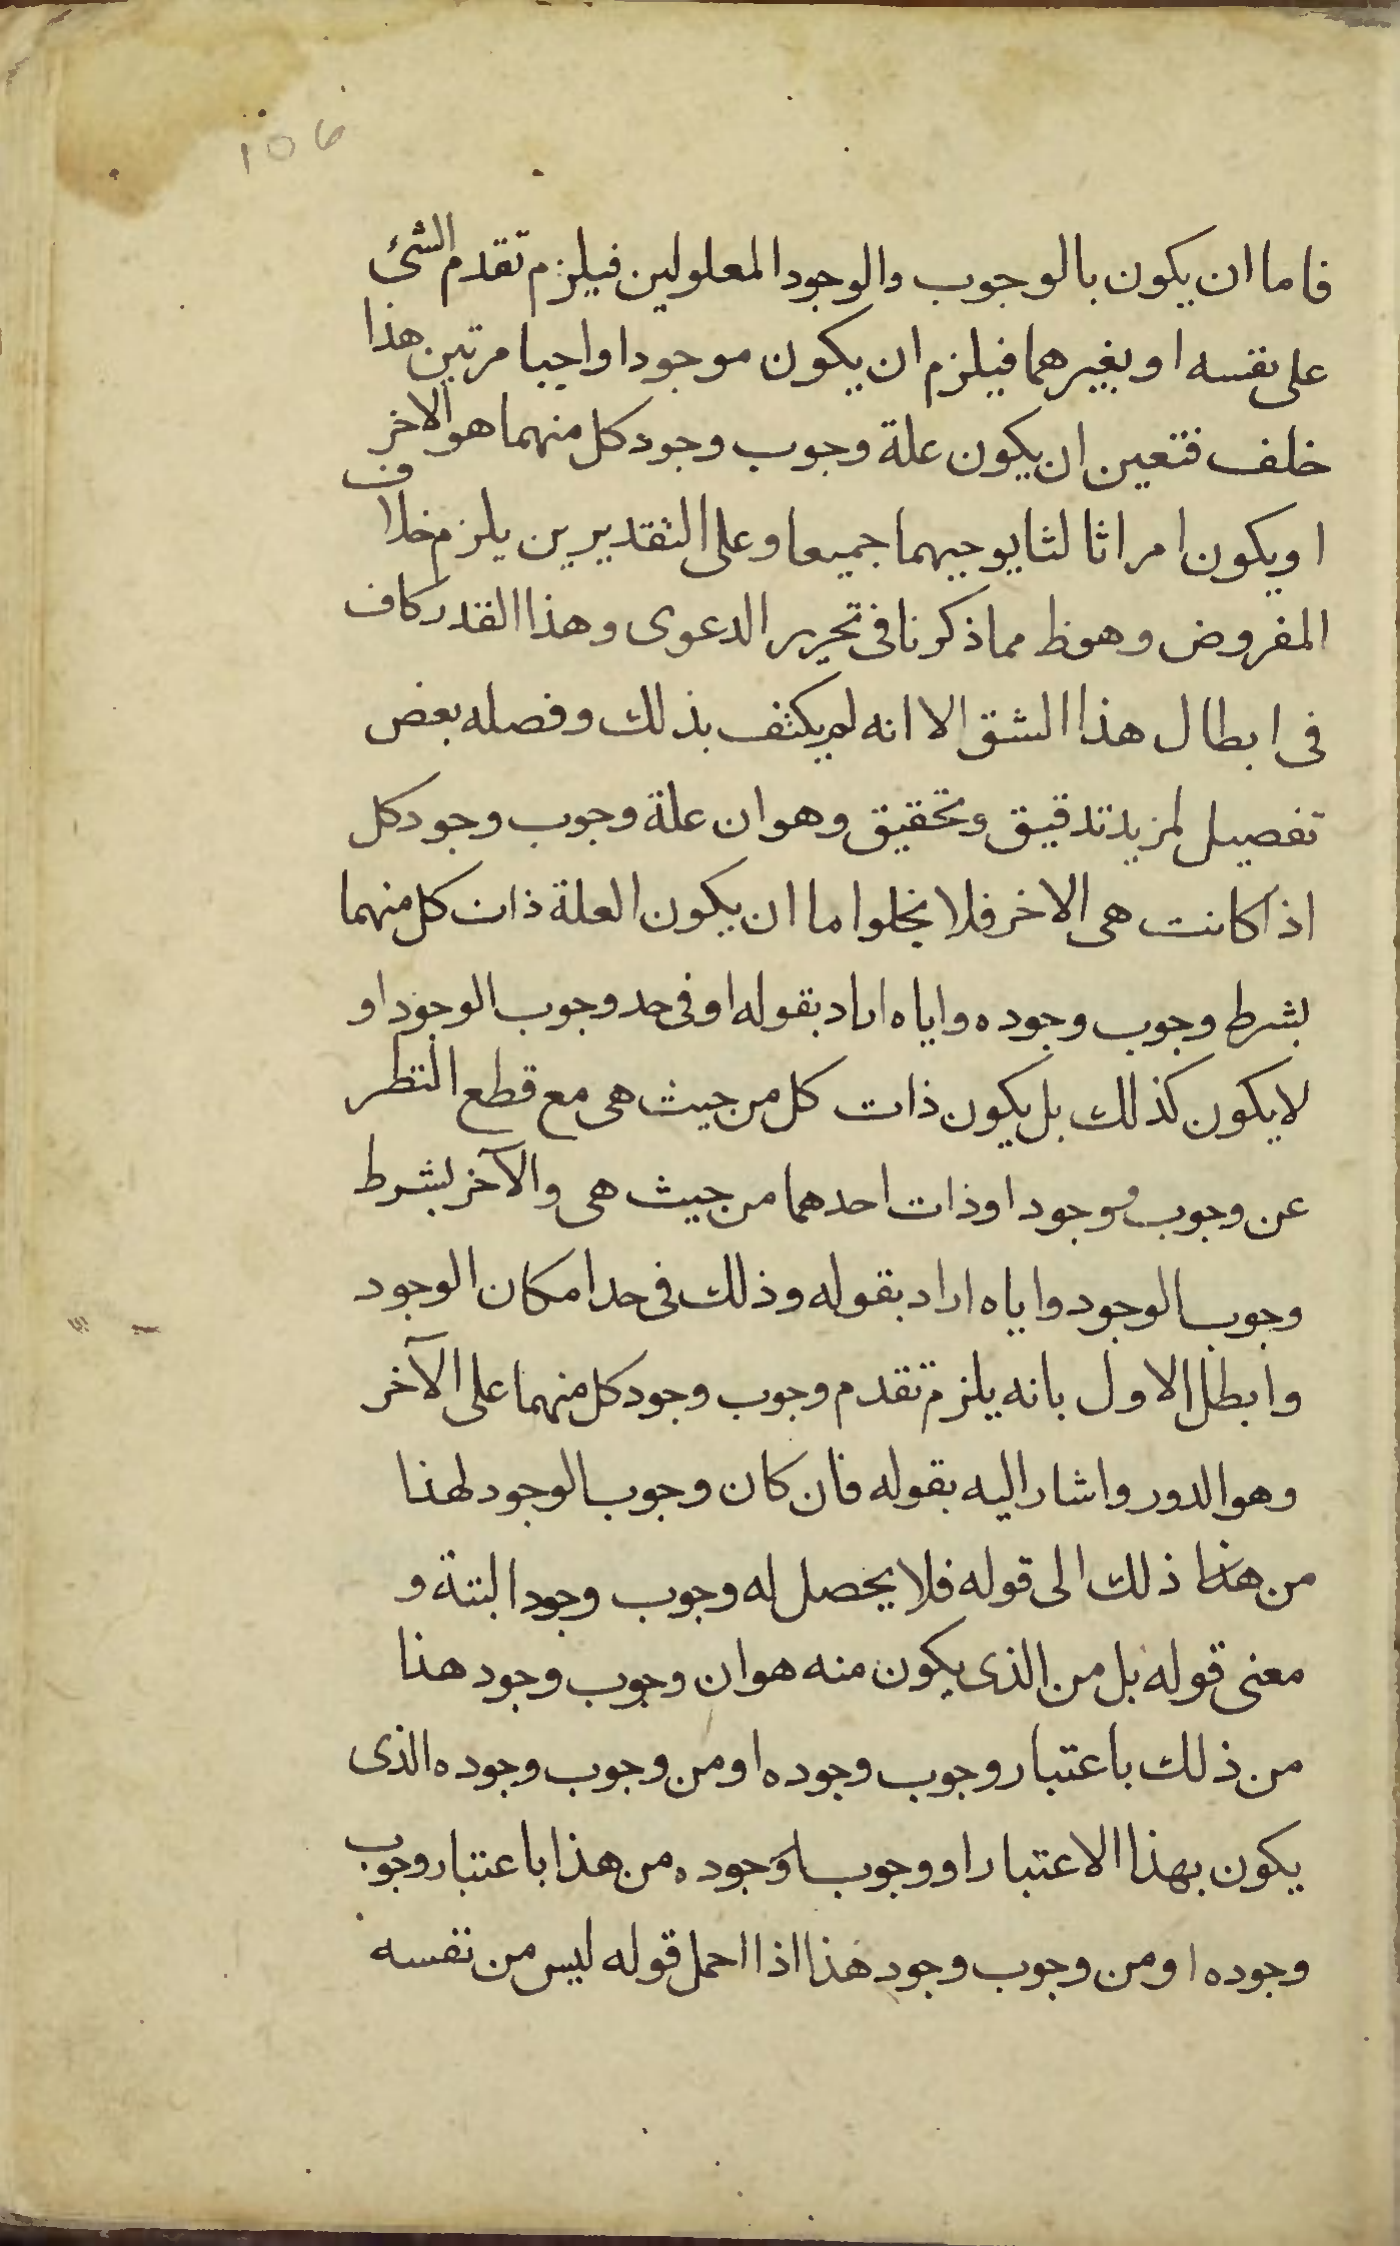 ١٥٦
فاما ان يكون بالوجوب والوجود المعلولين فيلزم تقدم الشئ
على نفسه او بغيرهما فيلزم ان يكون موجودا واجبا مرتين هذا
خلف فتعين ان يكون علة وجوب وجود كل منهما هو الاخر
او يكون امرا ثالثا يوجبهما جميعا وعلى التقديرين يلزم خلاف
المفروض وهو ظ مما ذكرنا فى تحرير الدعوى وهذا القدر كاف
فى ابطال هذا الشق الا انه لم يكتف بذلك وفصله بعض
تفصيل لمزيد تدقيق وتحقيق وهو ان علة وجوب وجود كل
اذا كانت هى الاخر فلا يخلوا ما ان يكون العلة ذات كل منهما
بشرط وجوب وجوده واياه اراد بقوله او فى حد وجوب الوجود او
لا يكون كذلك بل يكون ذات كل من حيث هى مع قطع النظر
عن وجوب وجود او ذات احدهما من حيث هى والآخر بشرط
وجوب الوجود واياه اراد بقوله وذلك فى حد امكان الوجود
وابطل الاول بانه يلزم تقدم وجوب وجود كل منهما على الآخر
وهو الدور واشار اليه بقوله فان كان وجوب الوجود لهذا
من هذا ذلك الى قوله فلا يحصل له وجوب وجود البتة و
معنى قوله بل من الذى يكون منه هو ان وجوب وجود هذا
من ذلك باعتبار وجوب وجوده او من وجوب وجوده الذى
يكون بهذا الاعتبار او وجوب وجوده من هذا باعتبار وجوب
وجوده او من وجوب وجود هذا اذا احمل قوله ليس من نفسه